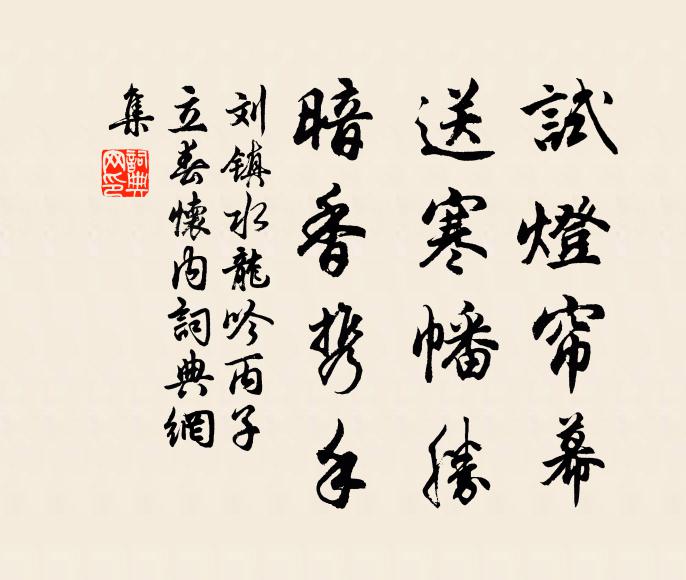 試燈帘幕
送寒幡勝
暗香携手
刘鎮水龍吟丙子
立春懷内詞典網
集
詞典
网印